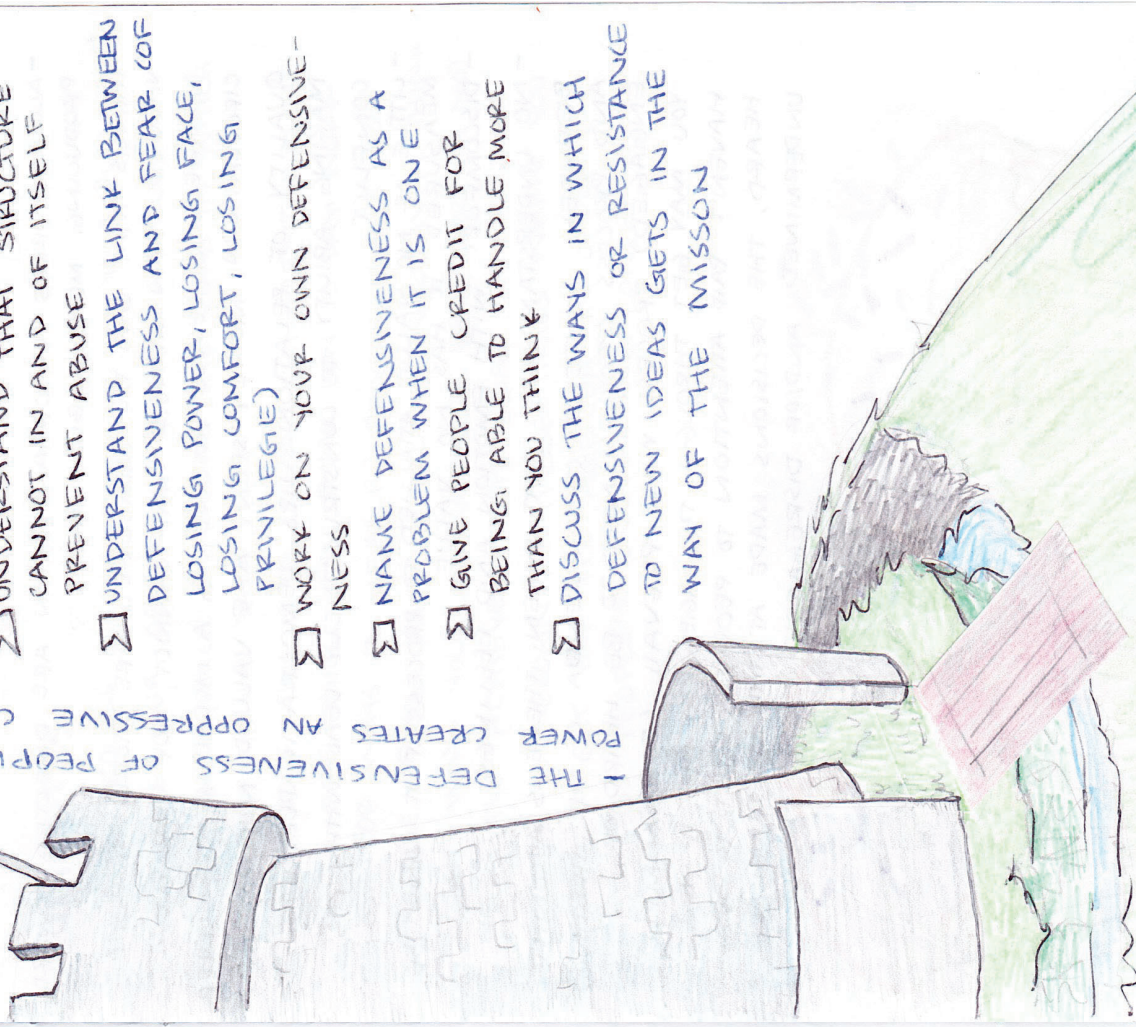 UNDERSTAND THAT STRUCTURE
CANNOT IN AND OF ITSELF
PREVENT ABUSE
UNDERSTAND THE LINK BETWEEN
DEFENSIVENESS AND FEAR (OF
LOSING POWER, LOSING FACE,
LOSING COMFORT, LOSING
PRIVILEGE)
WORK ON YOUR OWN DEFENSIVE-
NESS
NAME DEFENSIVENESS AS A
PROBLEM WHEN IT IS ONE
GIVE PEOPLE CREDIT FOR
BEING ABLE TO HANDLE MORE
THAN YOU THINK
DISCUSS THE WAYS IN WHICH
DEFENSIVENESS OR RESISTANCE
TO NEW IDEAS GETS IN THE
WAY OF THE MISSON
- THE DEFENSIVENESS OF PEOPL
POWER CREATES AN OPPRESSIVE C